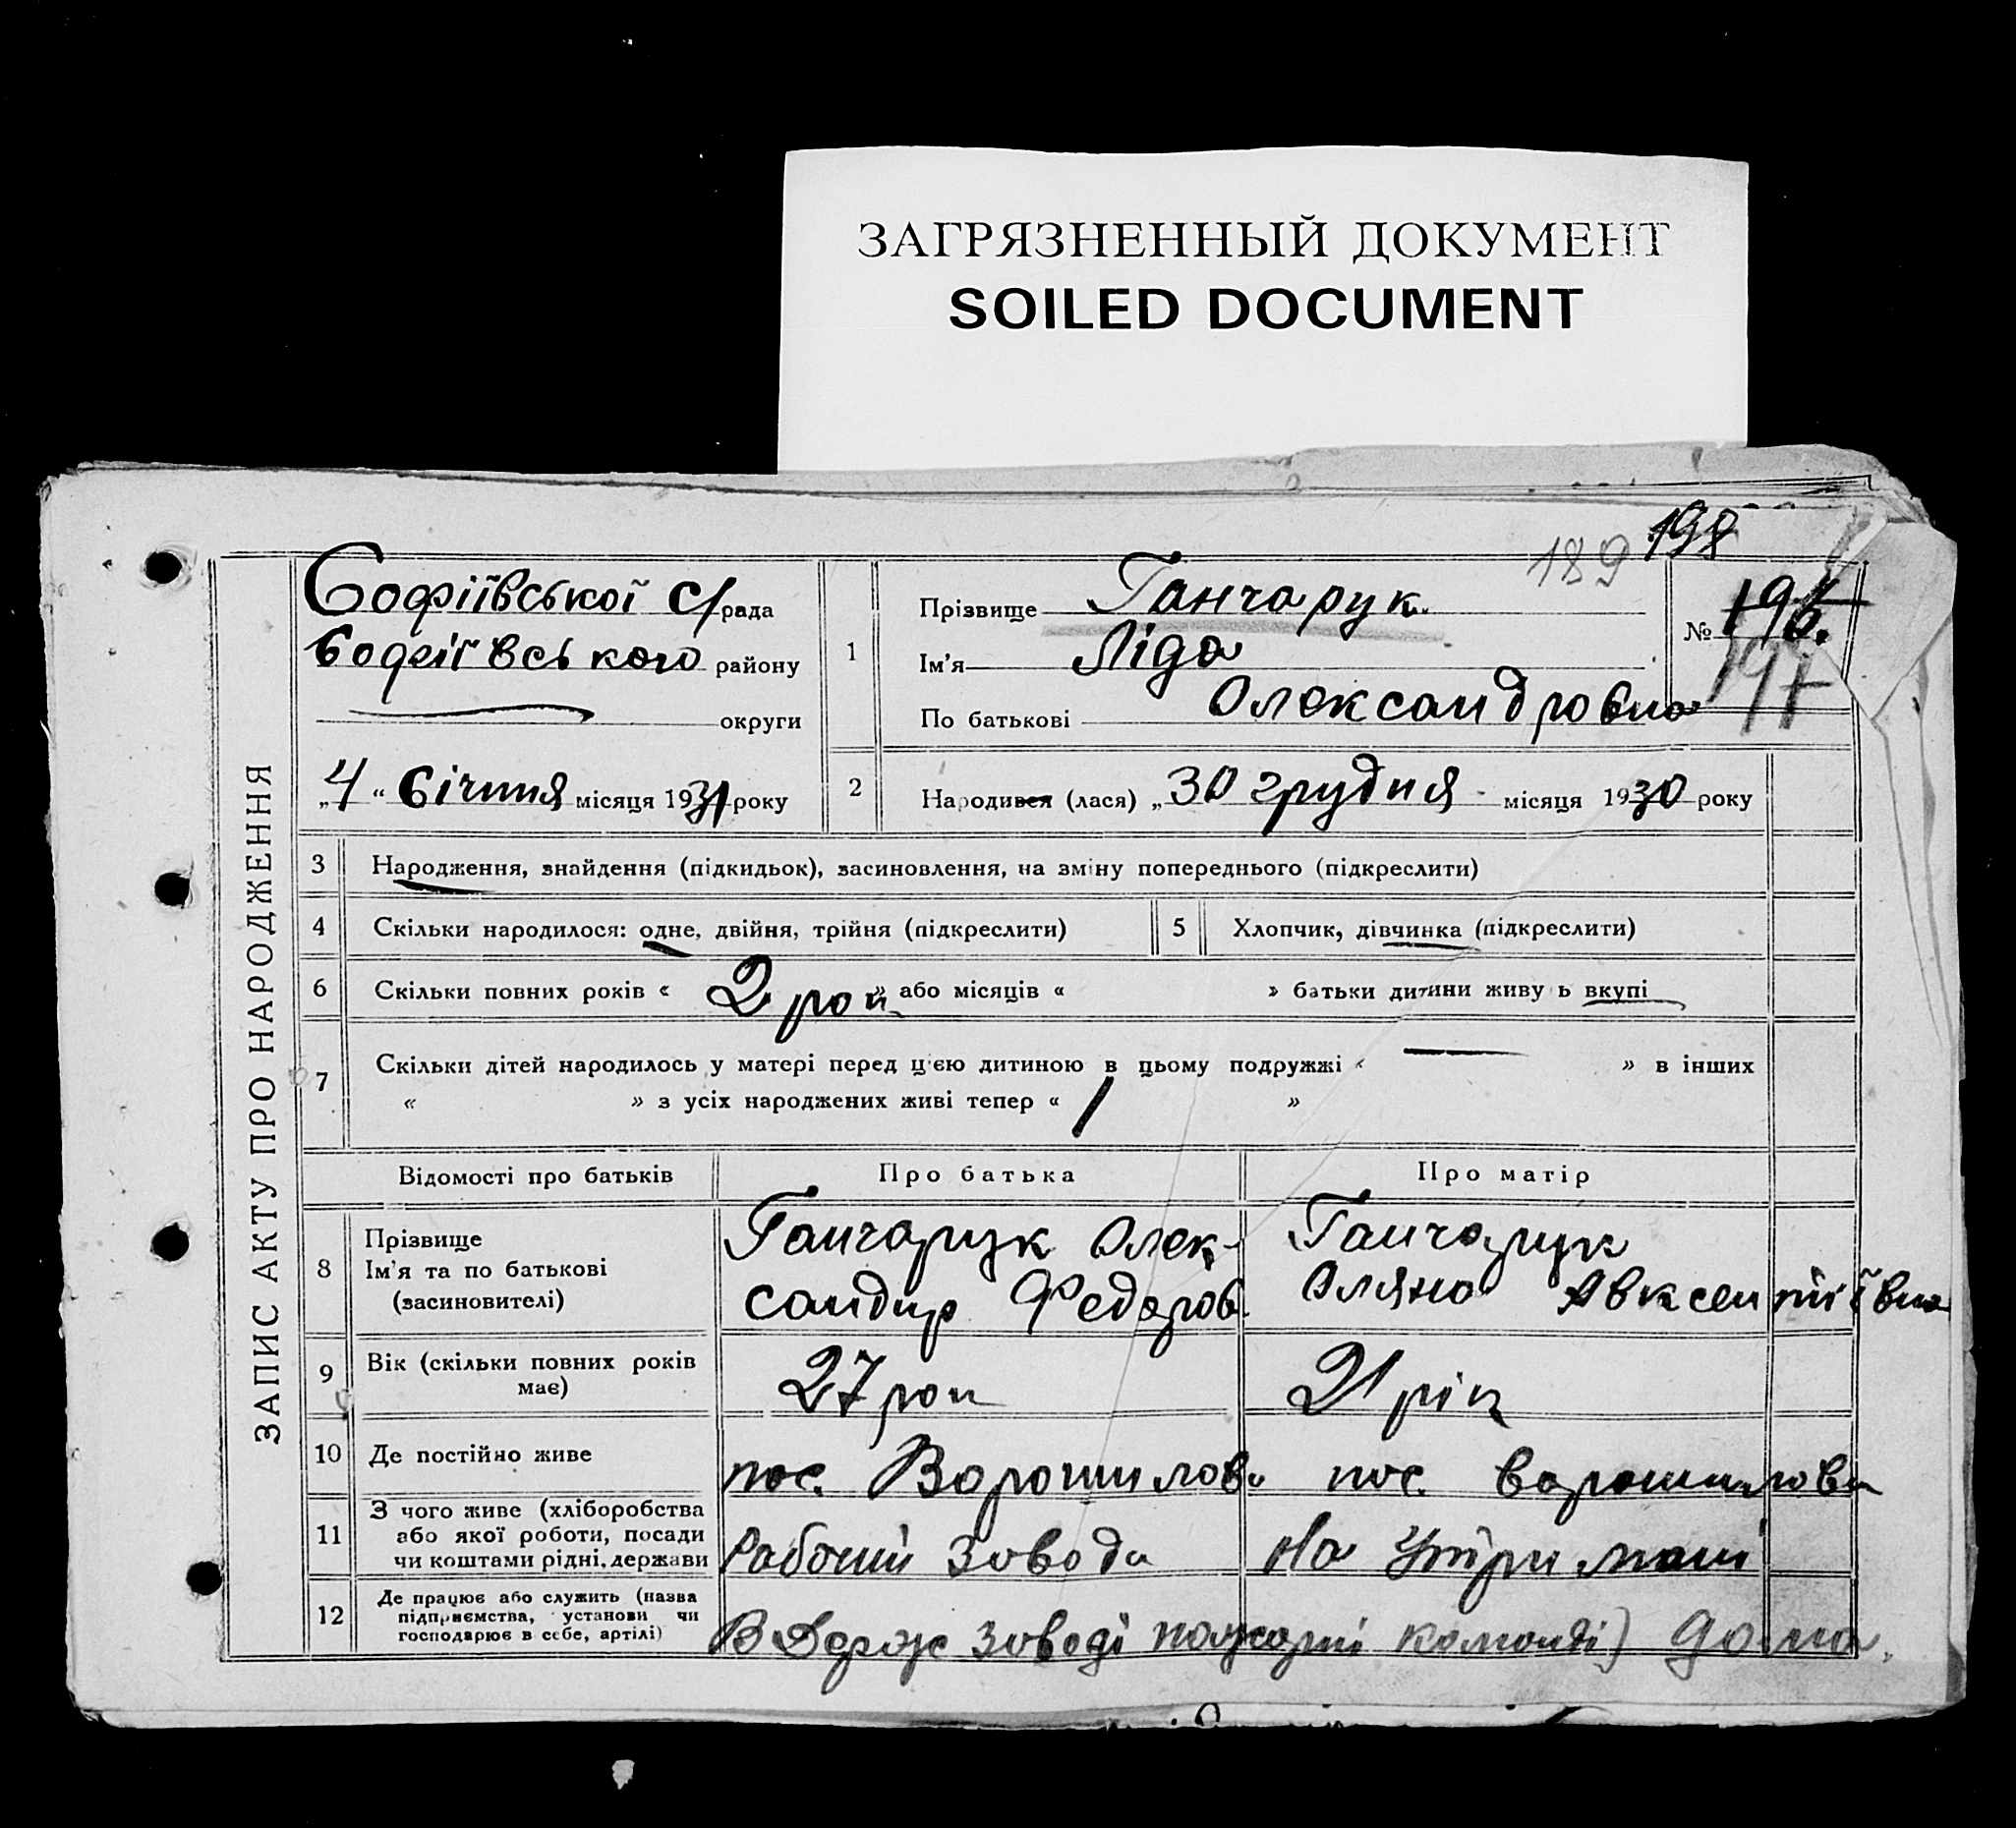 ЗАГРЯЗНЕННЫЙ ДОКУМЕНТ
SOILED DOCUMENT
189 198
ЗАПИС АКТУ ПРО НАРОДЖЕННЯ
Софіївської С/рада
Софіївського району
округи
„4“ Січння місяця 1931 року
1
Прізвище Ганчарук
Ім'я Ліда
По батькові Олександровна
№ 196.
197
2
Народився (лася) „30 грудня місяця 1930 року
3 Народження, знайдення (підкидьок), засиновлення, на зміну попереднього (підкреслити)
4 Скільки народилося: одне, двійня, трійня (підкреслити) 5 Хлопчик, дівчинка (підкреслити)
6 Скільки повних років « 2 рок » або місяців « » батьки дитини живуть вкупі
7 Скільки дітей народилось у матері перед цією дитиною в цьому подружжі « — » в інших
« » з усіх народжених живі тепер « 1 »
Відомості про батьків Про батька Про матір
8 Прізвище
Ім'я та по батькові
(засиновителі)
Ганчарук Олек-
сандир Федоров
Ганчарук
Оляна Авксентіївна
9 Вік (скільки повних років
має)
27 рок 21 рік
10 Де постійно живе пос. Ворошилова пос. Ворошилова
11 З чого живе (хліборобства
або якої роботи, посади
чи коштами рідні, держави
Рабочий Завода На Утримані
12 Де працює або служить (назва
підприємства, установи чи
господарює в себе, артілі)
В Держ Заводі пожарні команді) дома.